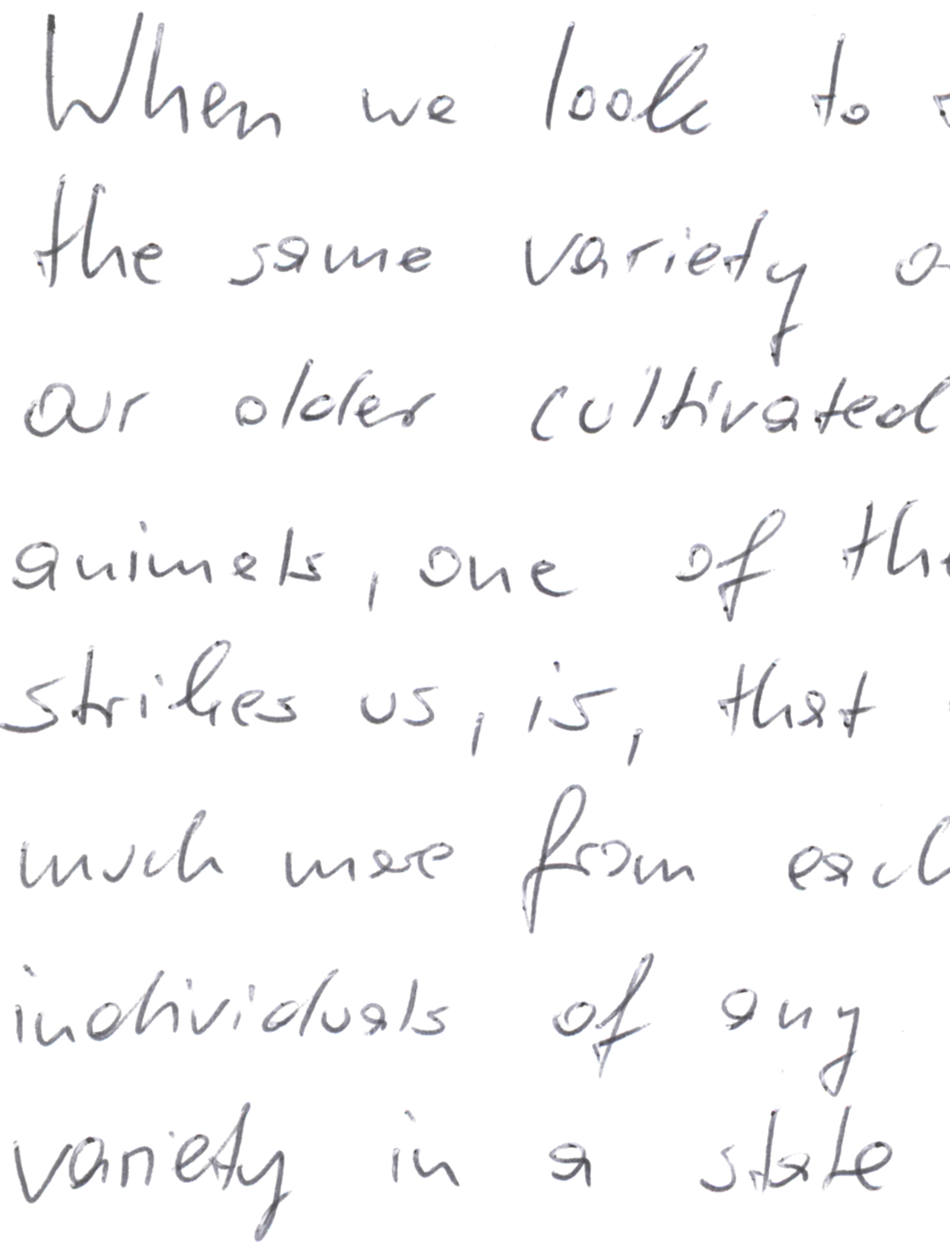 When we look to
the same variety
our older cultivated
animals, one of the
strikes us, is, that
much more from each
individuals of any
variety in a state